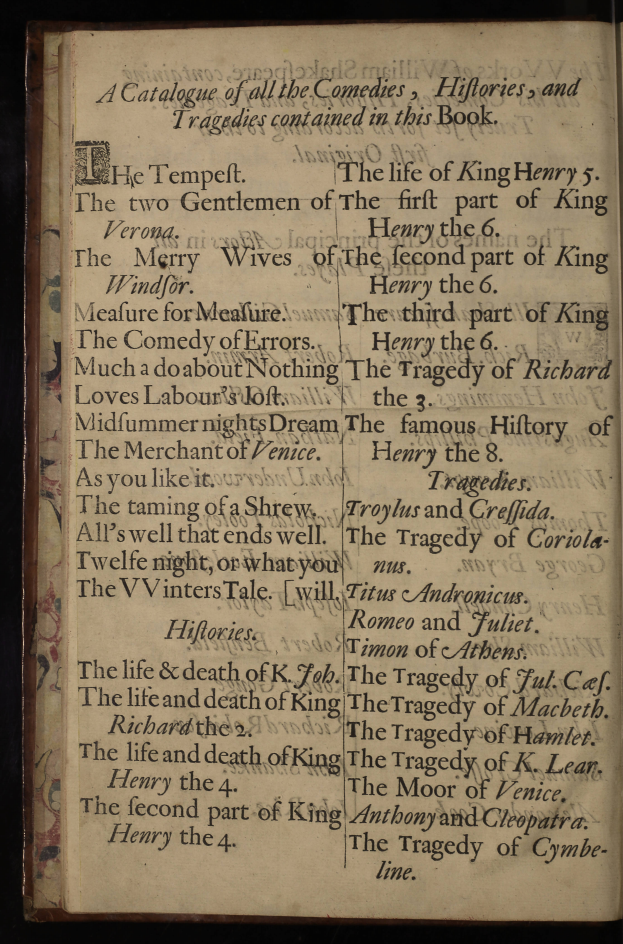 A Catalogue of all the Comedies, Hiſtories, and
Tragedies contained in this Book.
THe Tempeſt.
The two Gentlemen of
Verona.
The Merry Wives of
Windſor.
Meaſure for Meaſure.
The Comedy of Errors.
Much a do about Nothing
Loves Labour's loſt.
Midſummer nights Dream
The Merchant of Venice.
As you like it.
The taming of a Shrew.
All's well that ends well.
Twelfe night, or what you
The VVinters Tale. [will.
Hiſtories.
The life & death of K. Joh.
The life and death of King
Richard the 2.
The life and death of King
Henry the 4.
The ſecond part of King
Henry the 4.
The life of King Henry 5.
The firſt part of King
Henry the 6.
The ſecond part of King
Henry the 6.
The third part of King
Henry the 6.
The Tragedy of Richard
the 3.
The famous Hiſtory of
Henry the 8.
Tragedies.
Troylus and Creſſida.
The Tragedy of Coriola-
nus.
Titus Andronicus.
Romeo and Juliet.
Timon of Athens.
The Tragedy of Jul. Cæſ.
The Tragedy of Macbeth.
The Tragedy of Hamlet.
The Tragedy of K. Lear.
The Moor of Venice.
Anthony and Cleopatra.
The Tragedy of Cymbe-
line.